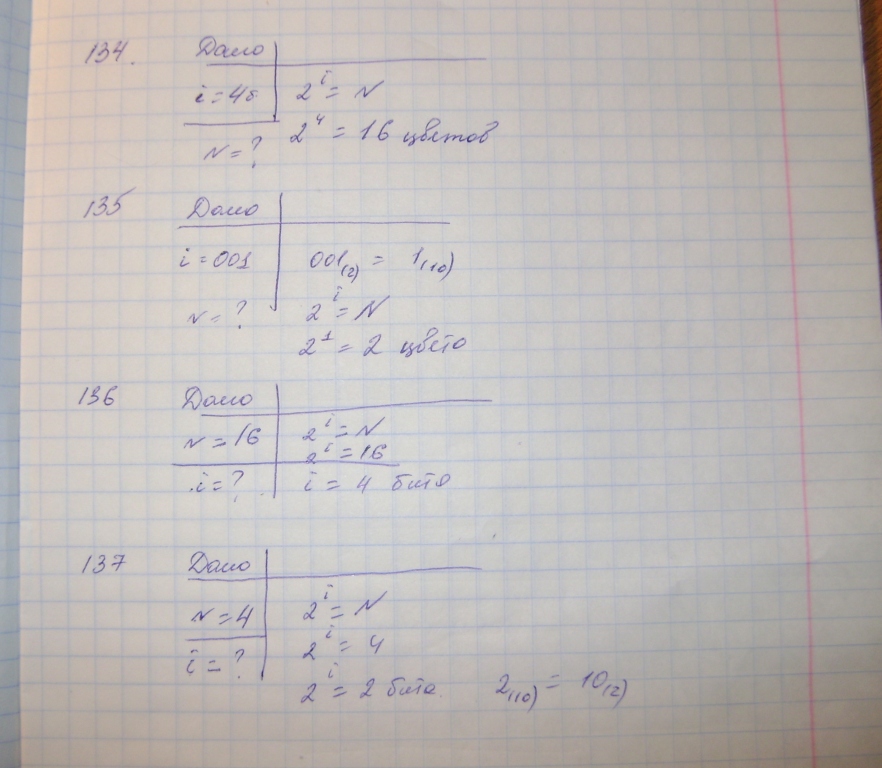 134. Дано
i = 4б 2^i = N
N = ? 2^4 = 16 цветов
135 Дано
i = 001 001(2) = 1(10)
N = ? 2^i = N
2^1 = 2 цвета
136 Дано
N = 16 2^i = N
2^i = 16
i = ? i = 4 бита
137 Дано
N = 4 2^i = N
i = ? 2^i = 4
2^i = 2 бита. 2(10) = 10(2)